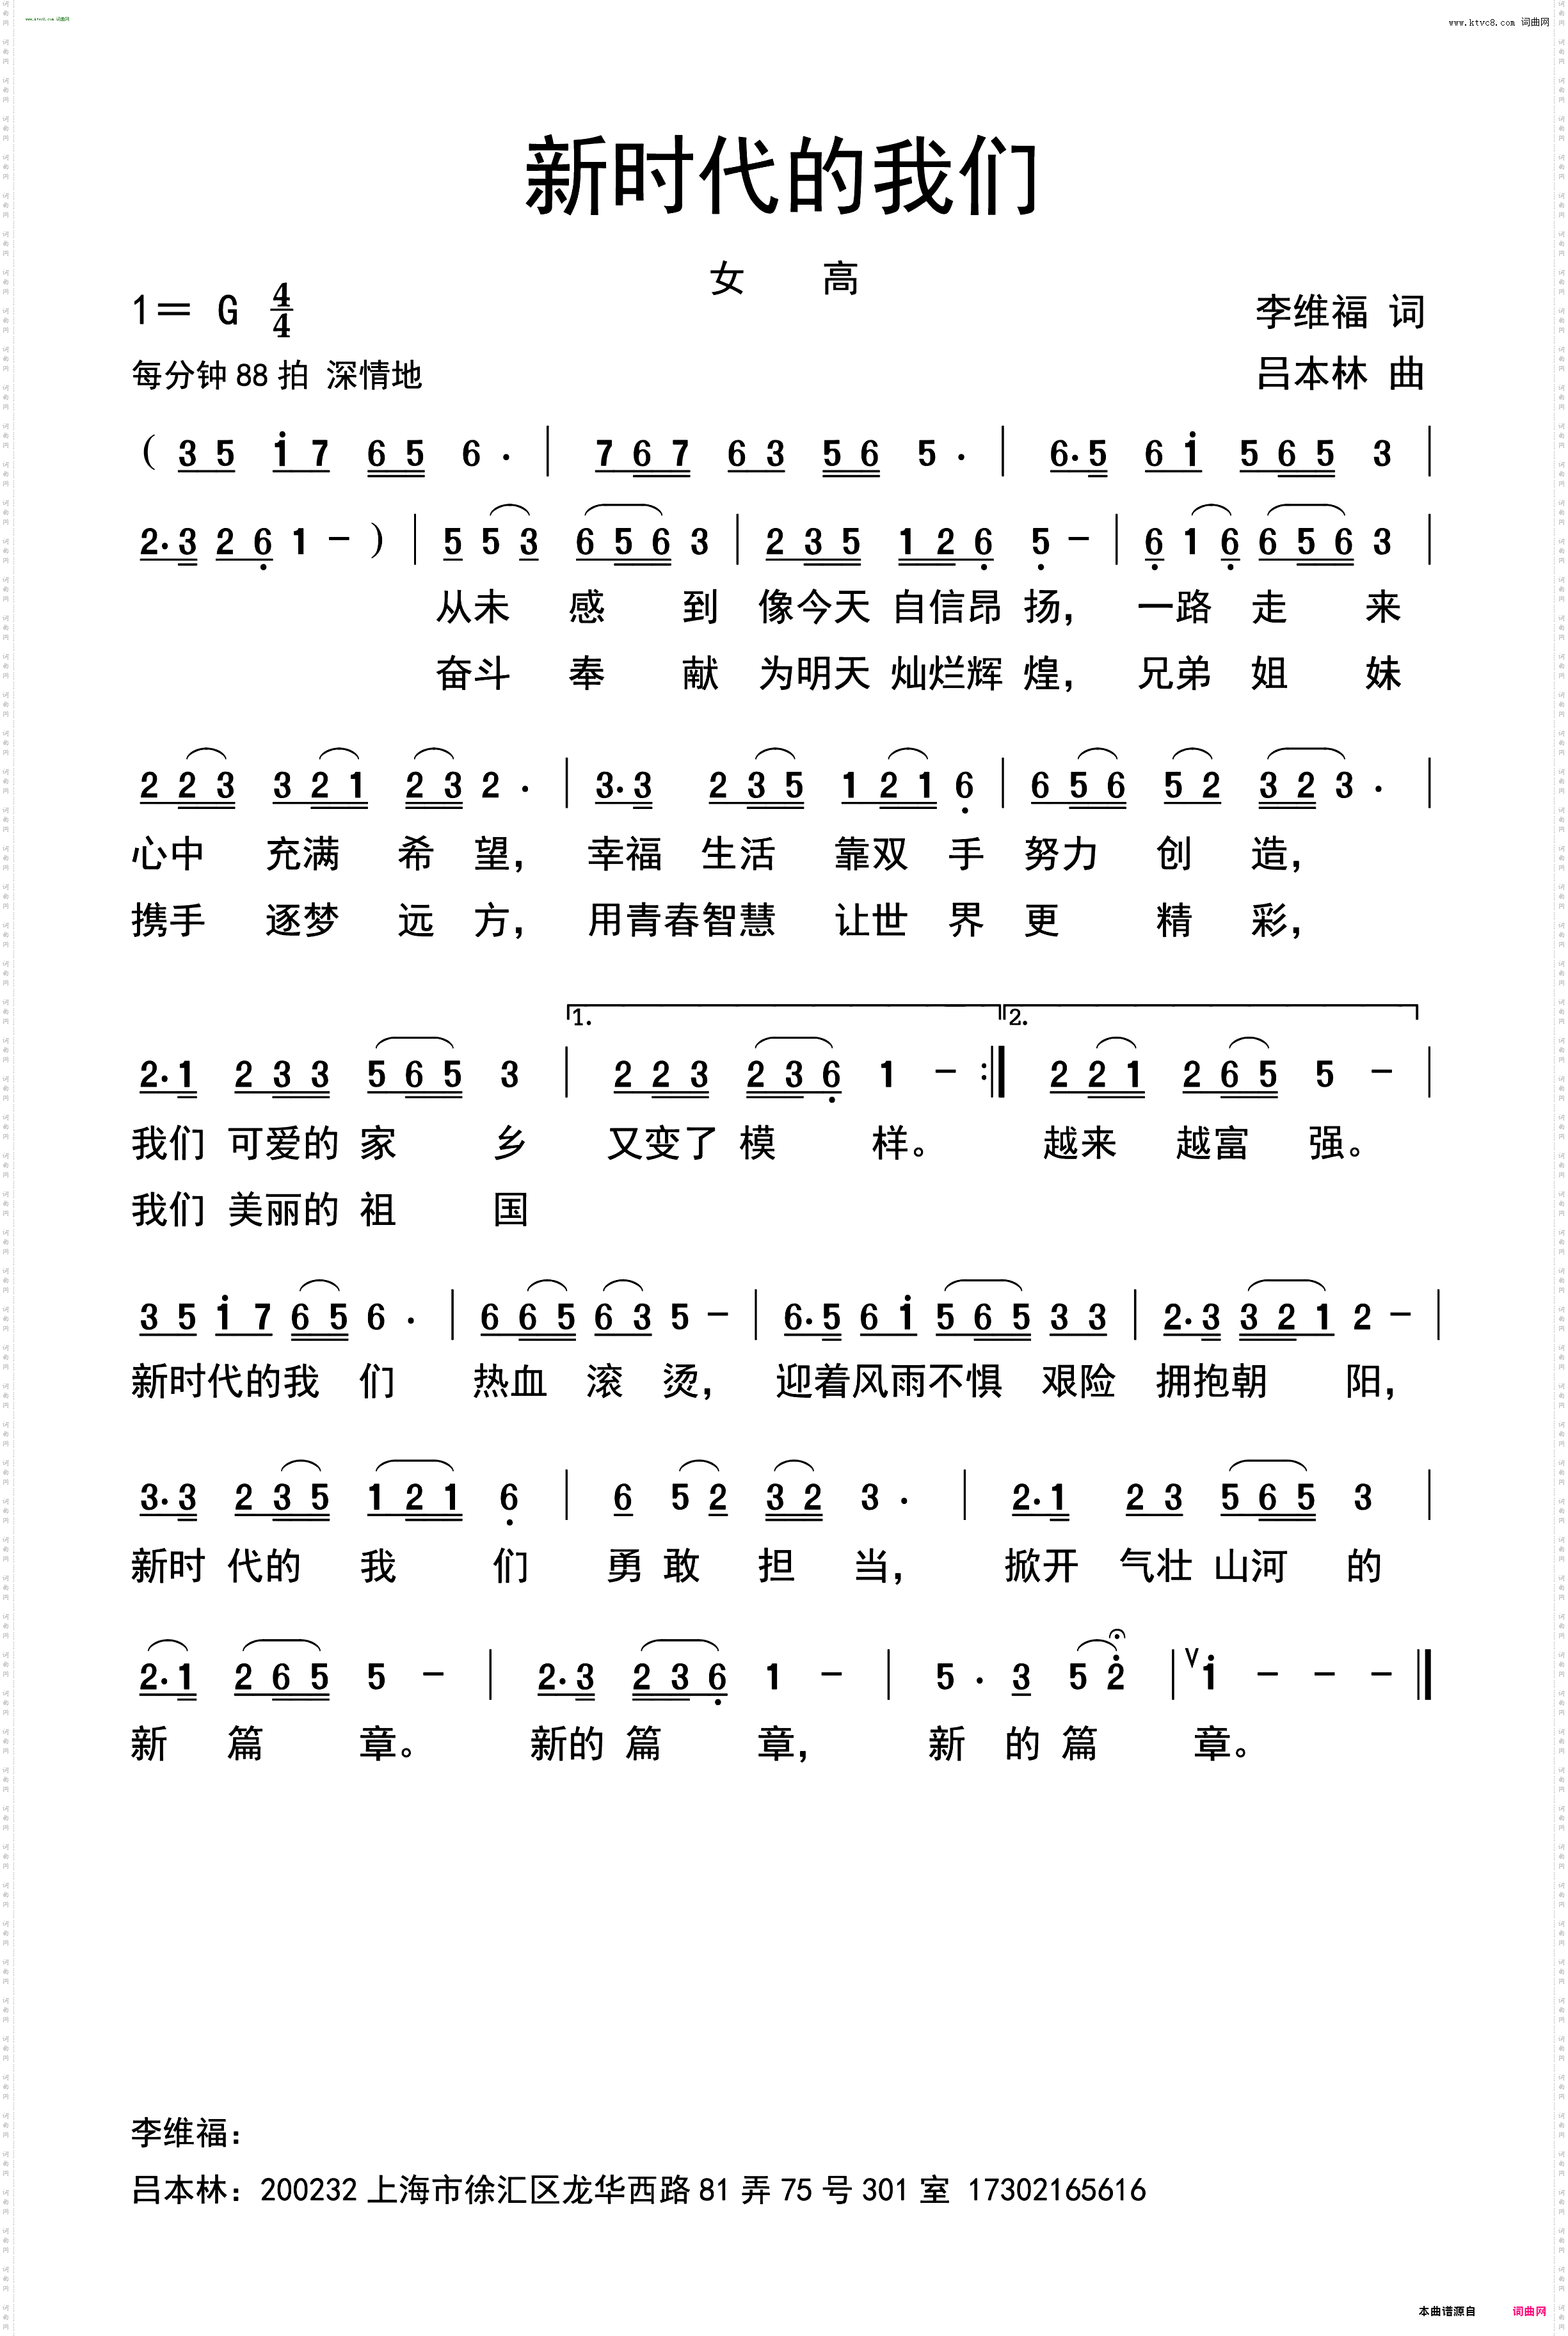 www.ktvc8.com 词曲网
www.ktvc8.com 词曲网
新时代的我们
女 高
1= G 4/4
李维福 词
每分钟 88 拍 深情地
吕本林 曲
( 3 5 1 7 6 5 6 . | 7 6 7 6 3 5 6 5 . | 6. 5 6 1 5 6 5 3 |
2. 3 2 6 1 - ) | 5 5 3 6 5 6 3 | 2 3 5 1 2 6 5 - | 6 1 6 6 5 6 3 |
从未 感 到 像今天 自信昂 扬, 一路 走 来
奋斗 奉 献 为明天 灿烂辉 煌, 兄弟 姐 妹
2 2 3 3 2 1 2 3 2 . | 3. 3 2 3 5 1 2 1 6 | 6 5 6 5 2 3 2 3 . |
心中 充满 希 望, 幸福 生活 靠双 手 努力 创 造,
携手 逐梦 远 方, 用青春智慧 让世 界 更 精 彩,
1. 2.
2. 1 2 3 3 5 6 5 3 | 2 2 3 2 3 6 1 - :| 2 2 1 2 6 5 5 - |
我们 可爱的 家 乡 又变了 模 样。 越来 越富 强。
我们 美丽的 祖 国
3 5 1 7 6 5 6 . | 6 6 5 6 3 5 - | 6. 5 6 1 5 6 5 3 3 | 2. 3 3 2 1 2 - |
新时代的我 们 热血 滚 烫, 迎着风雨不惧 艰险 拥抱朝 阳,
3. 3 2 3 5 1 2 1 6 | 6 5 2 3 2 3 . | 2. 1 2 3 5 6 5 3 |
新时 代的 我 们 勇 敢 担 当, 掀开 气壮 山河 的
2. 1 2 6 5 5 - | 2. 3 2 3 6 1 - | 5 . 3 5 2 | 1 - - - |
新 篇 章。 新的 篇 章, 新 的 篇 章。
李维福:
吕本林: 200232 上海市徐汇区龙华西路 81 弄 75 号 301 室 17302165616
本曲谱源自 词曲网